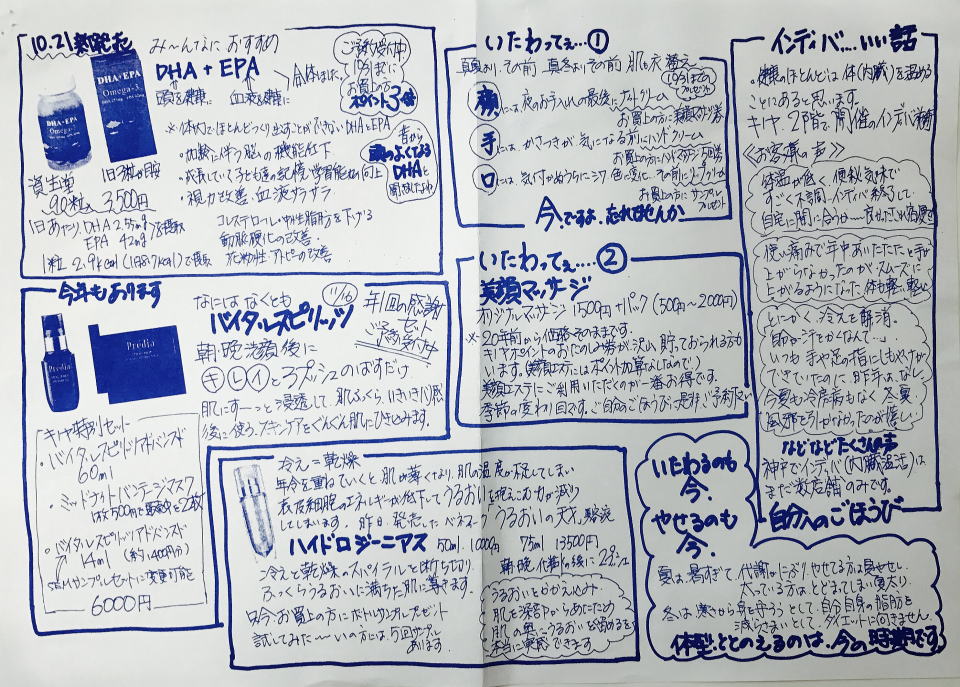 10.21 新発売
み〜んなに おすすめ
DHA + EPA
頭を健康に 血液を健康に
合体しました
ご予約受付中
10/31までに
お買上の方
ポイント3倍
DHA+EPA
Omega-3
DHA・EPA
Omega-3
※体内でほとんどつくり出すことができない DHA+EPA
・加齢に伴う脳の機能低下
・成長していく子ども達の記憶・学習能力の向上
・視力改善・血液サラサラ
コレステロール・中性脂肪を下げる
動脈硬化の改善・
花粉症・アトピーの改善
昔から
頭のよくなる
DHA
と
資生堂
1日3粒目安
90粒入 3,500円
1日あたり、DHA 255mg
EPA 42mg を摂取
1粒 2.9kcal (1日8.7kcal)で
いたわってぇ…①
真夏より、その前 真冬よりその前 肌も衣替え〜
顔には 夜のお手入れの最後にナイトクリーム
お買上の方に
手には、かさつきが気になる前にハンドクリーム
お買上の方に
口には、気付かぬうちにシワ
お買上の方にサンプル
プレゼント
今、ですよ、忘れてませんか
いたわってぇ…②
美顔マッサージ
オリジナルマッサージ 1500円+パック (500円〜2000円)
※20年前から価格そのままです。
キリヤポイントのおたのしみ券が沢山 貯っておられる方も
います。(美顔エステにはポイント加算なしなので)
美顔エステにご利用いただくのが一番お得です。
季節の変わり目です。ご自分のごほうびに是非ご予約下さい
インディバ…いい話
・健康のほとんどは 体(内臓)を温める
ことにあると思います。
キリヤ・2階で 開催のインディバ
《お客様の声》
体温が低く 便秘気味で
すごく不調、インディバ
自宅に間に合うか…
使い痛みで年中あいたたたと手が
上がらなかったのがスムーズに
上がるようになった 体も軽い軽い
とにかく、冷えを解消。
即効汗をかくなんて…
いつも 手や足の指にしもやけが
できていたのに 昨年はなし、
今夏も冷房病もなく 冬夏
風邪を引かなかったのが嬉しい
などなどたくさんの声
神戸でインディバ(内臓温活)は
まだ数店舗のみです。
自分へのごほうび
今年もあります
11/16
なにはなくとも
バイタルスピリッツ
年1回の感謝
セット
ご予約受付中
Predia
Predia
朝・晩洗顔後に
キレイと3プッシュのばすだけ
肌にすーっと浸透して、肌ふっくら、いきいき(ハリ)感
後に使う、スキンケアをぐんぐん肌にひき込みます。
キリヤ特別セット
・バイタルスピリッツアドバンスド
60ml
・ミッドナットバンテージマスク
1枚500円で販売分を2枚
・バイタルスピリッツアドバンスド
14ml (約1,400円分)
SAMサンプルセットに変更可能
6000円
冷え=乾燥
年令を重ねていくと、肌が薄くなり、肌の温度が低くしてしまい
表皮細胞のエネルギーが低下してうるおいを抱えこむ力が減り
してしまいます。昨日、発売した ベネフィーク「うるおいの天才」美容液
ハイドロジーニアス 50ml 10000円 75ml 13500円
朝・晩 化粧水の後に
冷えと乾燥のスパイラルを断ちきり
ふっくらうるおいに満ちた肌に導きます。
只今、お買上の方に
試してみた〜いの方は、5回サンプル
あります。
うるおいをかかえこみ
肌を深部からあたため
肌の奥へうるおいを
本当に実感できます
いたわるのも
今、
やせるのも
今、
夏は、暑すぎて、代謝がにぶり やせてる方は夏やせし、
太っている方は、とどまってしまい夏太り、
冬は、寒さから身を守ろうとして、自分自身の脂肪を
減らさまいとして、ダイエットに向きません
体型ととのえるのは、今の時期です